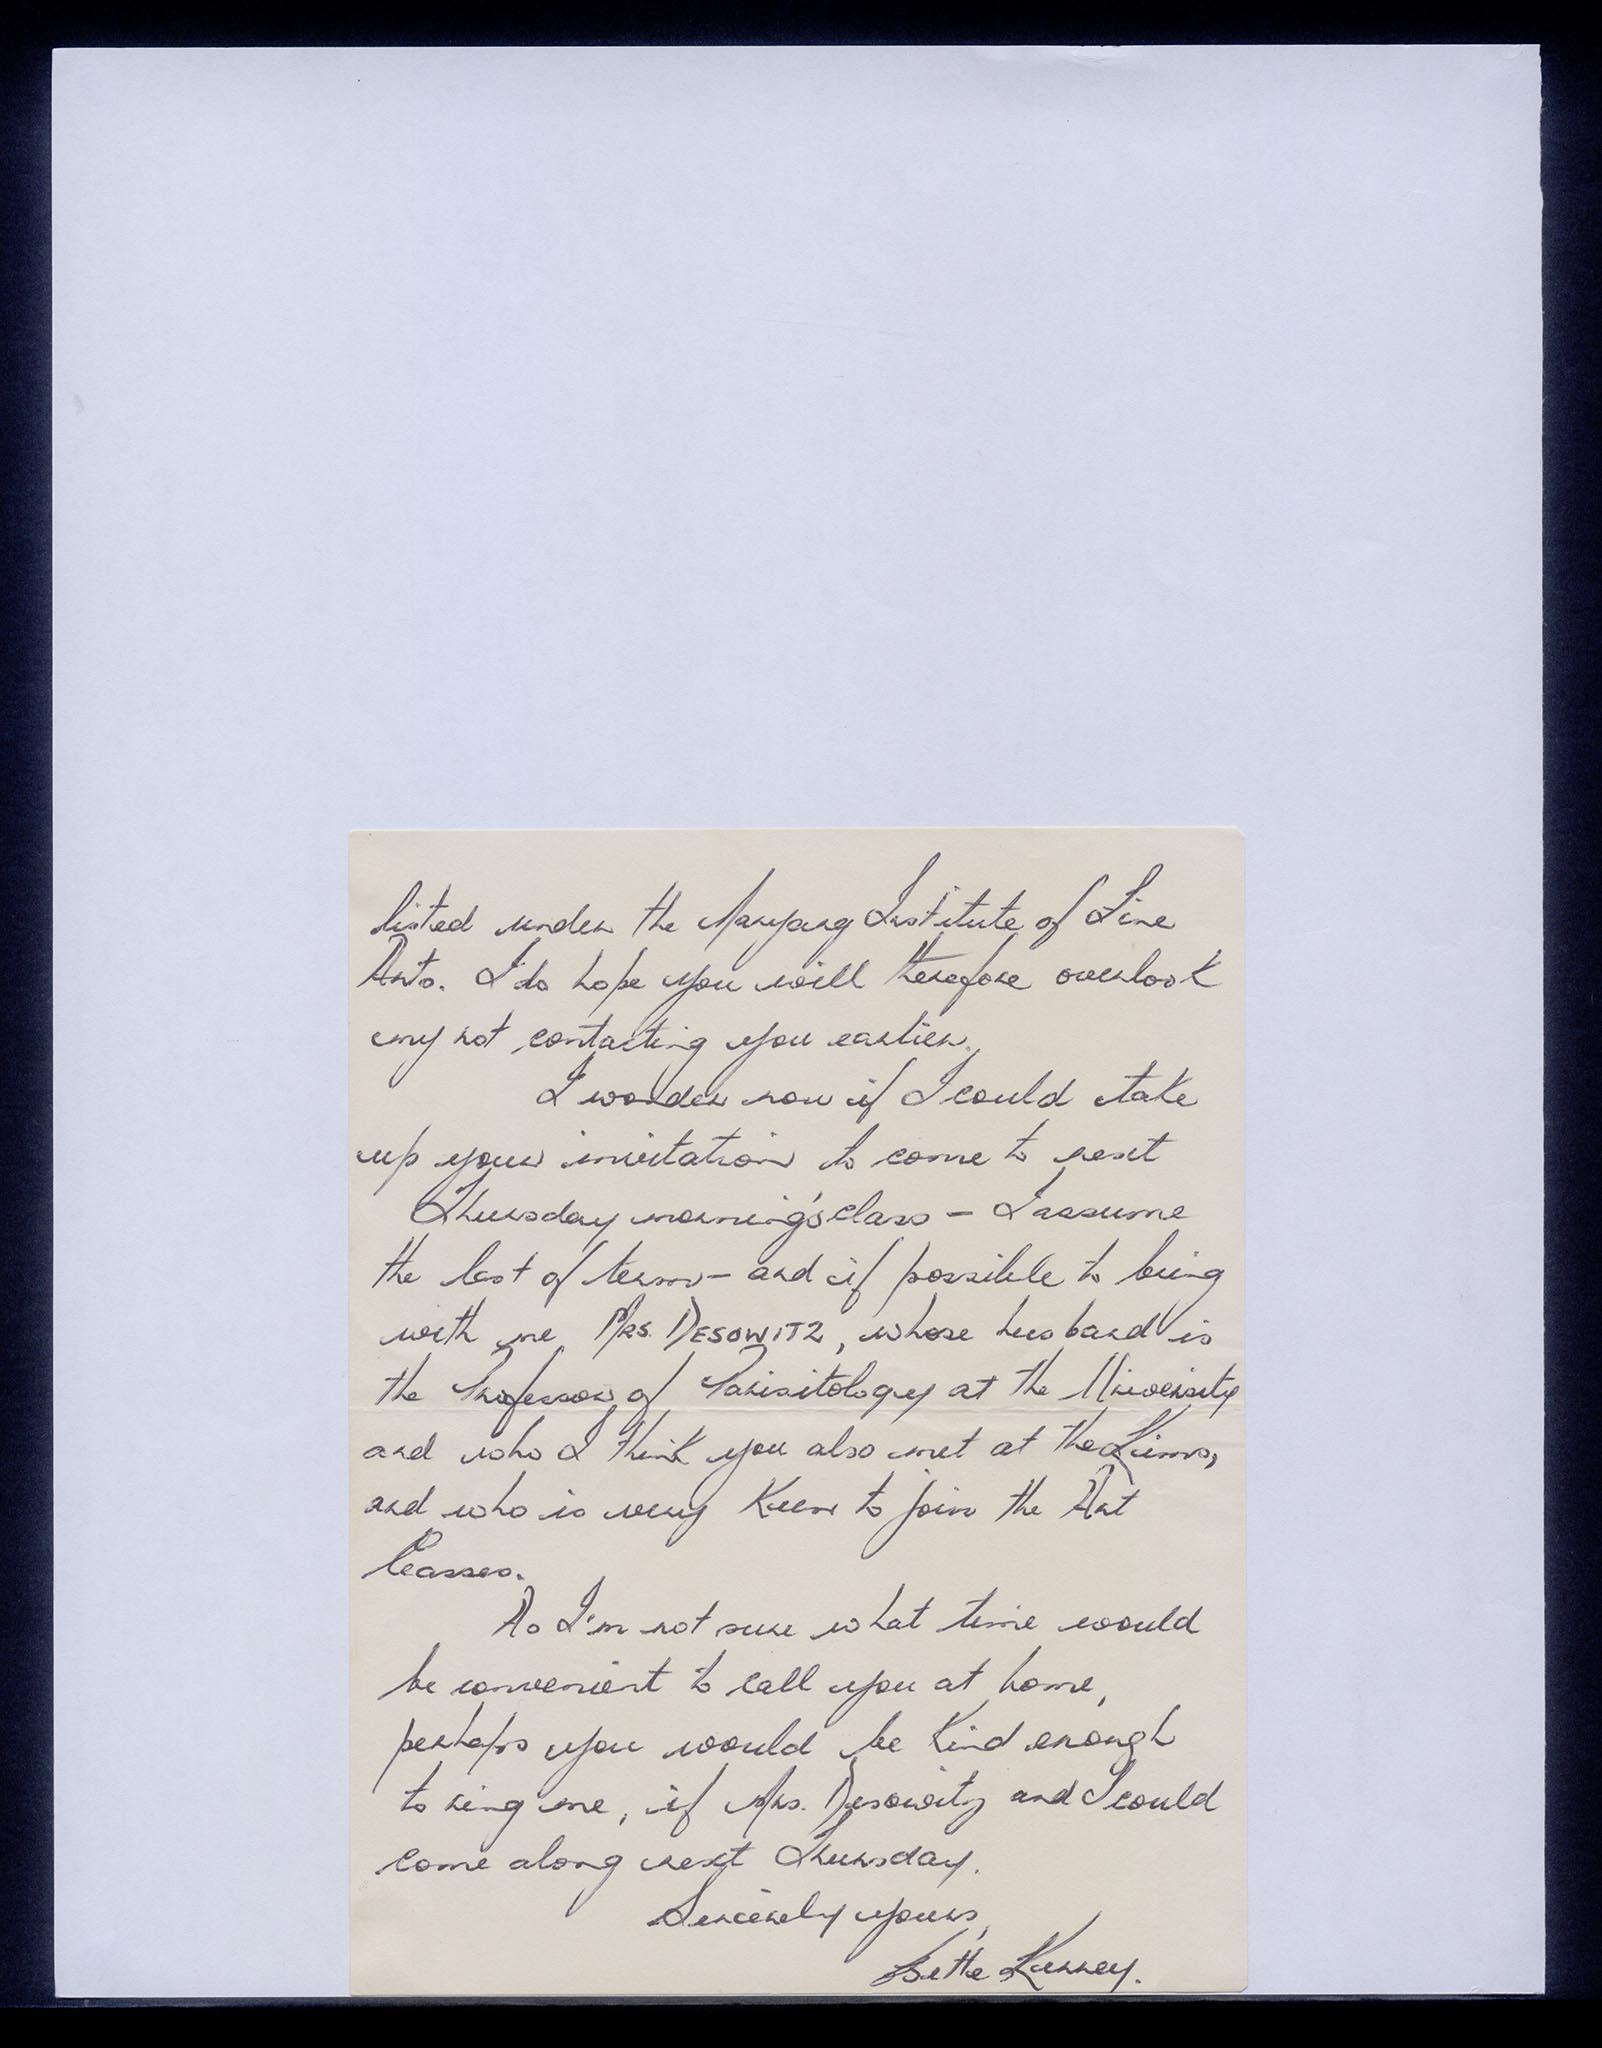 listed under the Nanyang Institute of Fine
Arts. I do hope you will therefore overlook
my not contacting you earlier.
I wonder now if I could take
up your invitation to come to next
Thursday morning's class - I assume
the last of term - and if possible to bring
with me MRS. DESOWITZ, whose husband is
the Professor of Parisitology at the University
and who I think you also met at the Lims,
and who is very Keen to join the Art
Classes.
As I'm not sure what time would
be convenient to call you at home,
perhaps you would be Kind enough
to ring me, if Mrs. Desowitz and I could
come along next Thursday.
Sincerely yours,
Bette